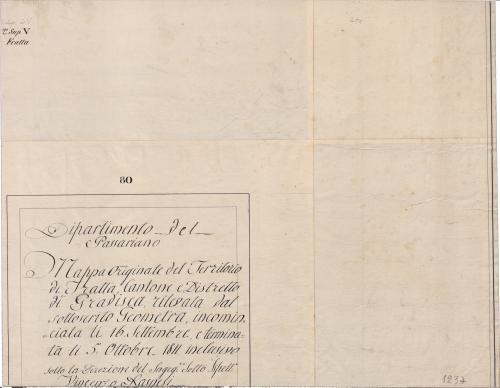 2.ª Sup V
Fratta
80
Dipartimento del
Passariano
Mappa Originale del Territorio
di Fratta, Cantone e Distretto
di Gradisca, rilevata dal
sottoscrito Geometra, incomin,
ciata li 16 Settembre, e termina,
ta li 5 Ottobre 1811 inclusivo
sotto la Direzione del Ingeg.
Vincenzo
1237